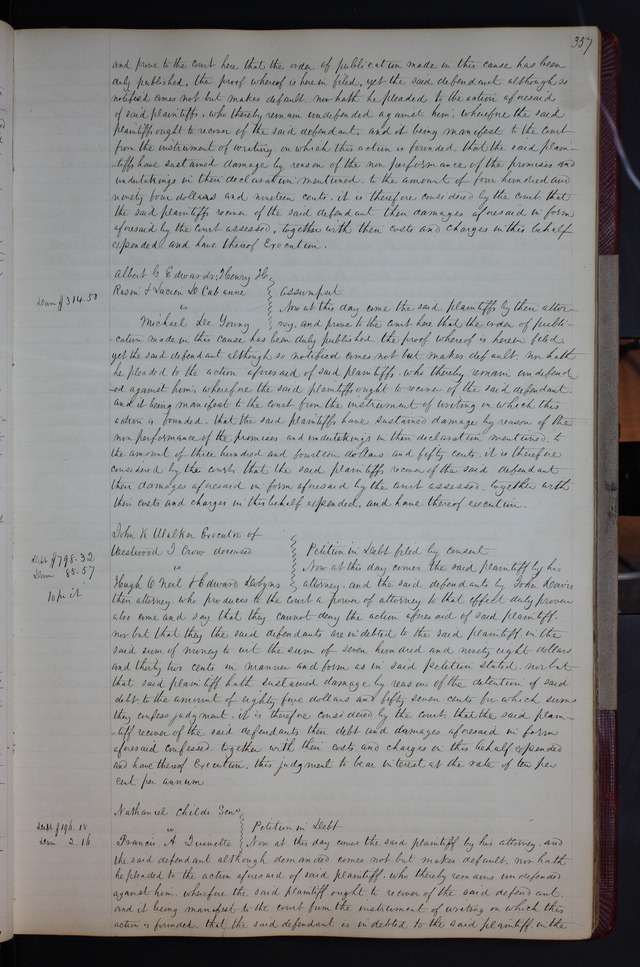 357
and prove to the court here that the order of publication made in this cause has been
duly published, the proof whereof is herein filed, yet the said defendant although so
notified comes not but makes default nor hath he pleaded to the action aforesaid
of said plaintiffs, who thereby remain undefended against him: wherefore the said
plaintiffs ought to recover of the said defendant, and it being manifest to the court
from the instrument of writing on which this action is founded, that the said plain-
-tiffs have sustained damage by reason of the non performance of the promises and
undertakings in their declaration mentioned, to the amount of four hundred and
ninety four dollars and nineteen cents. it is therefore considered by the court that
the said plaintiffs recover of the said defendant their damages aforesaid in form
aforesaid by the court assessed, together with their costs and charges in this behalf
expended and have thereof Execution.
Albert G Edwards, Henry H.
Rasin & Lucien D Cabanne
Assumpsit
Dam $314.50
vs
Now at this day come the said plaintiffs by their attor-
Michael Lee Young
ney, and prove to the court here that the order of publi-
-cation made in this cause has been duly published the proof whereof is herein filed
yet the said defendant although so notified comes not but makes default, nor hath
he pleaded to the action aforesaid of said plaintiffs, who thereby remain undefend
-ed against him, wherefore the said plaintiffs ought to recover of the said defendant.
and it being manifest to the court from the instrument of writing on which this
action is founded, that the said plaintiffs have sustained damage by reason of the
non performance of the promises and undertakings in their declaration mentioned, to
the amount of three hundred and fourteen dollars and fifty cents. it is therefore
considered by the court, that the said plaintiffs recover of the said defendant
their damages aforesaid in form aforesaid by the court assessed, together with
their costs and charges in this behalf expended, and have thereof execution.
John K Walker Executor of
Westwood T Crow deceased
Petition in Debt filed by consent
Debt $798.32
Dam 85.57
10 pr ct
vs
Now at this day comes the said plaintiff by his
Hugh O Neil & Edward Dobyns
attorney, and the said defendants by John Davis
their attorney, who produces to the court a power of attorney to that effect duly proven
also come and say that they cannot deny the action aforesaid of said plaintiff.
nor but that they the said defendants are indebted to the said plaintiff in the
said sum of money to wit the sum of seven hundred and ninety eight dollars
and thirty two cents in manner and form as in said petition stated, nor but
that said plaintiff hath sustained damage by reason of the detention of said
debt to the amount of eighty five dollars and fifty seven cents for which sums
they confess judgment. it is therefore considered by the court, that the said plain-
-tiff recover of the said defendants their debt and damages aforesaid in form
aforesaid confessed, together with their costs and charges in this behalf expended
and have thereof Execution, this judgment to bear interest at the rate of ten per
cent per annum
Nathaniel Childs Senr
vs
Petition in Debt
Debt $196.18
Dam 2.16
Francis A
Now at this day comes the said plaintiff by his attorney, and
the said defendant although demanded comes not but makes default, nor hath
he pleaded to the action aforesaid of said plaintiff, who thereby remains undefended
against him, wherefore the said plaintiff ought to recover of the said defendant.
and it being manifest to the court from the instrument of writing on which this
action is founded, that the said defendant is indebted to the said plaintiff in the